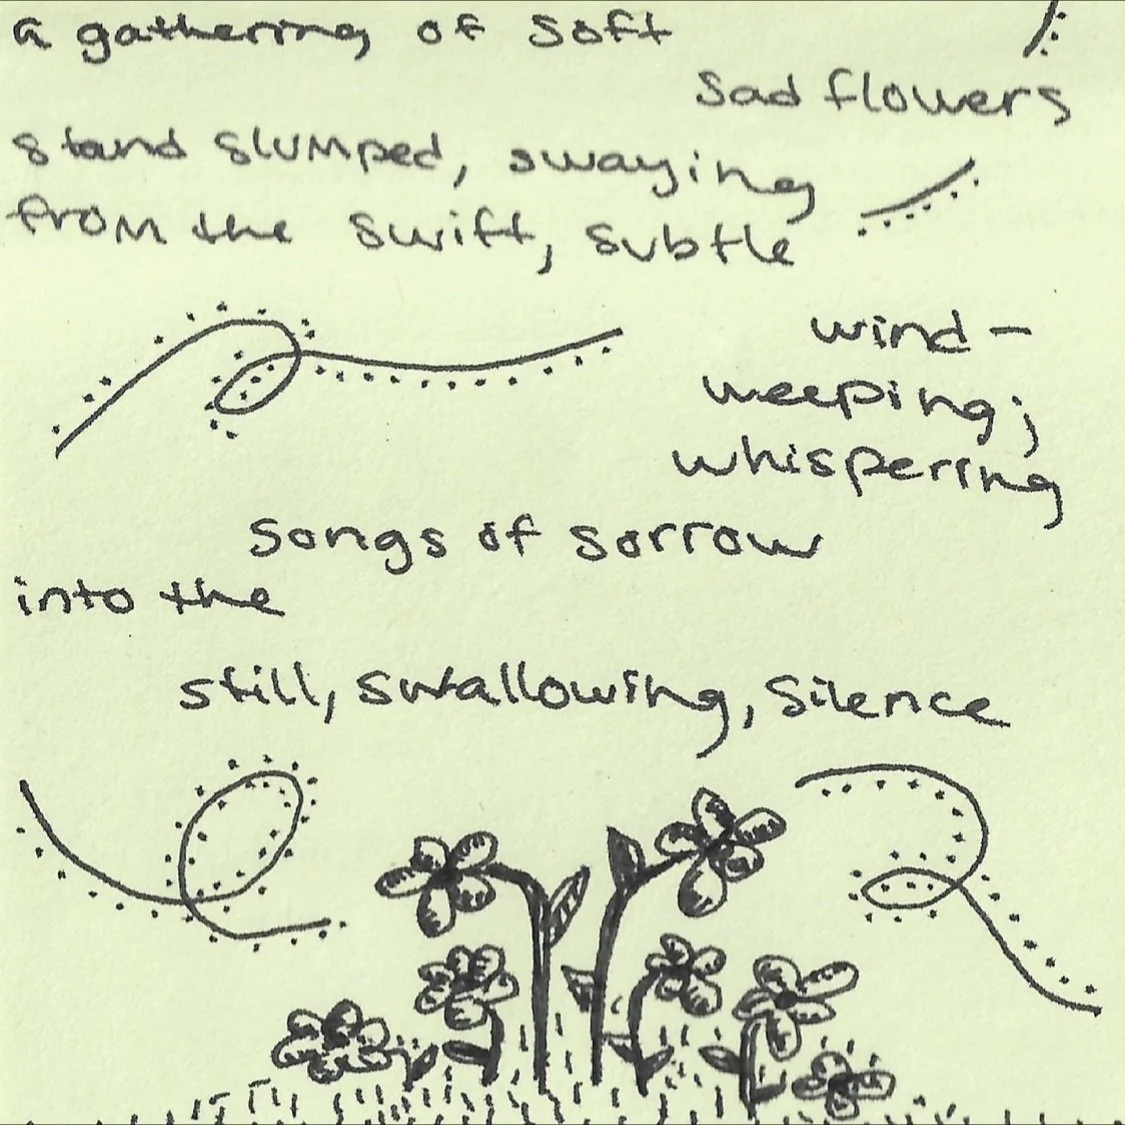 a gathering of soft
sad flowers
stand slumped, swaying
from the swift, subtle
wind –
weeping;
whispering
songs of sorrow
into the
still, swallowing, silence